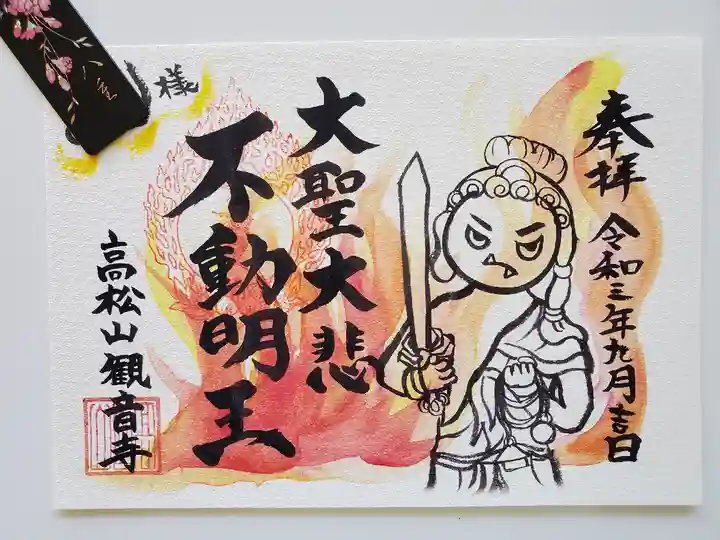 奉拝
令和三年九月吉日
大聖大悲
不動明王
高松山観音寺
様